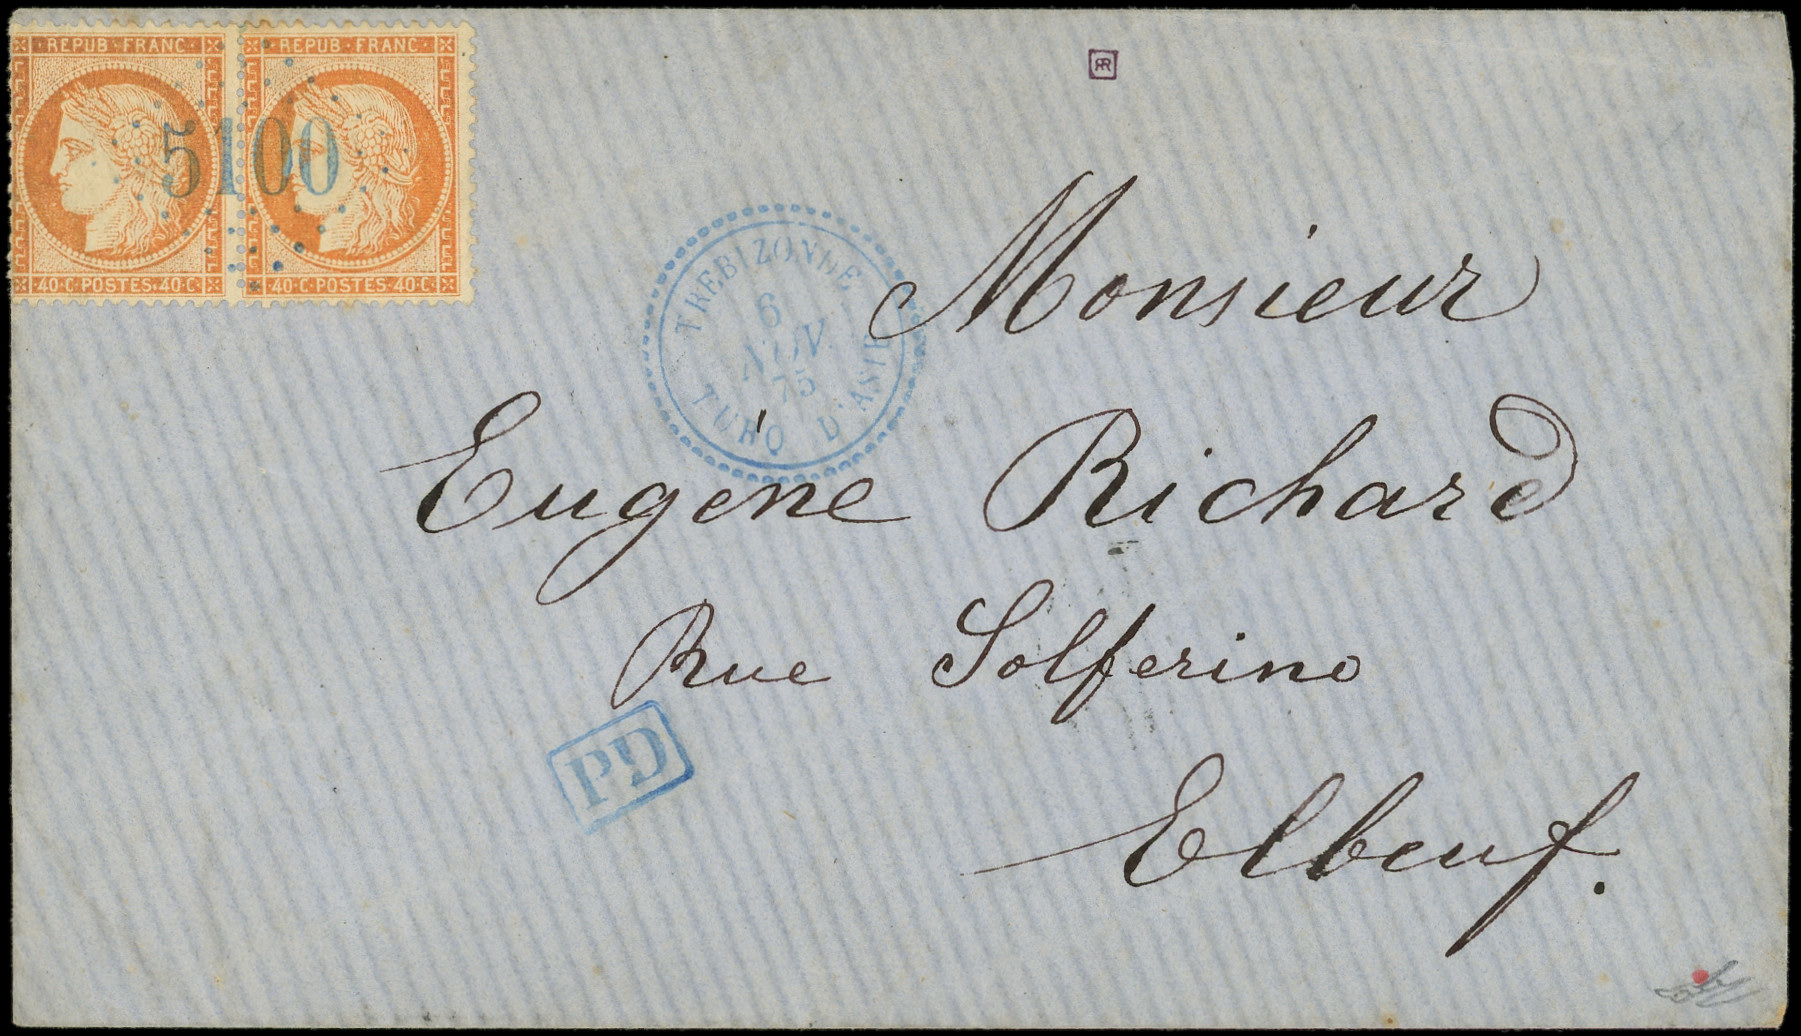 REPUB·FRANC· REPUB·FRANC·
5100
40·C·POSTES·40·C· 40·C·POSTES·40·C·
TREBIZONDE
6
NOV.
75
TURQ D'ASIE
Monsieur
Eugène Richard
Rue Solferino
PD
Elbeuf.